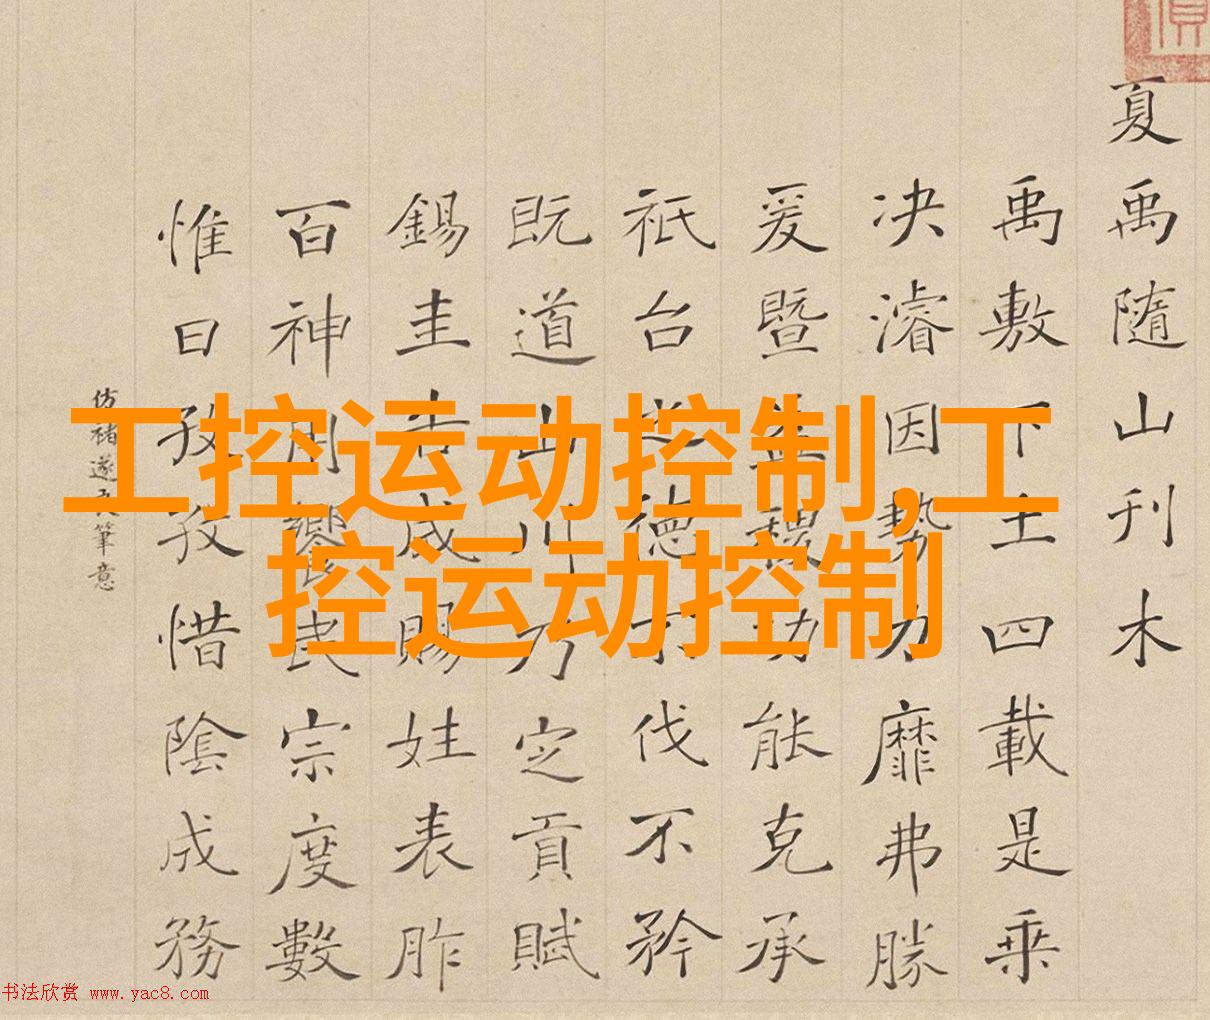 工控运动控制,工
控运动控制
夏禹隨山刊木
禹敷下土四載是乘
决濬因勢力靡弗勝
爰暨益稷功能克承
祇台德不伐不矜
既道山川乃定貢賦
錫圭告成賜姓表胙
百神用饗民宗度數
惟日孜孜惜陰成務
仿褚遂良筆意
书法欣赏 www.yac8.com